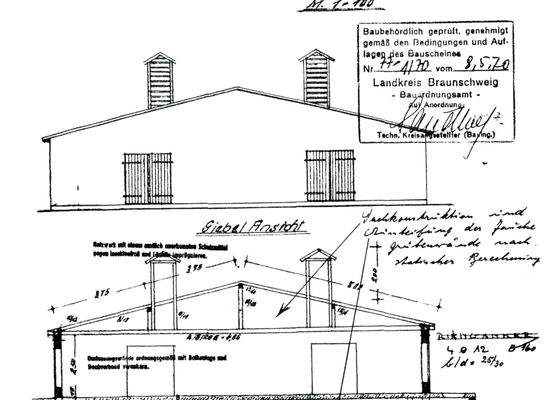 M. 1 - 100
Baubehördlich geprüft, genehmigt
gemäß den Bedingungen und Auf-
lagen des Bauscheines
Nr. 77-1/70 vom 8.5.70
Landkreis Braunschweig
- Bauordnungsamt -
Auf Anordnung
Techn. Kreisangestellter (Bauing.)
Giebel Ansicht
Dachkonstruktion und
Aussteifung der Jauche
grubenwände nach
statischer Berechnung
Holzwerk mit einem amtlich anerkannten Schutzmittel
gegen Insektenfraß und Fäulnis imprägnieren.
200
Umfassungswände ordnungsgemäß mit Balkenlage und
Dachverband verankern.
RINGANKER
4 ⌀ 12 B 160
b/d = 25/30